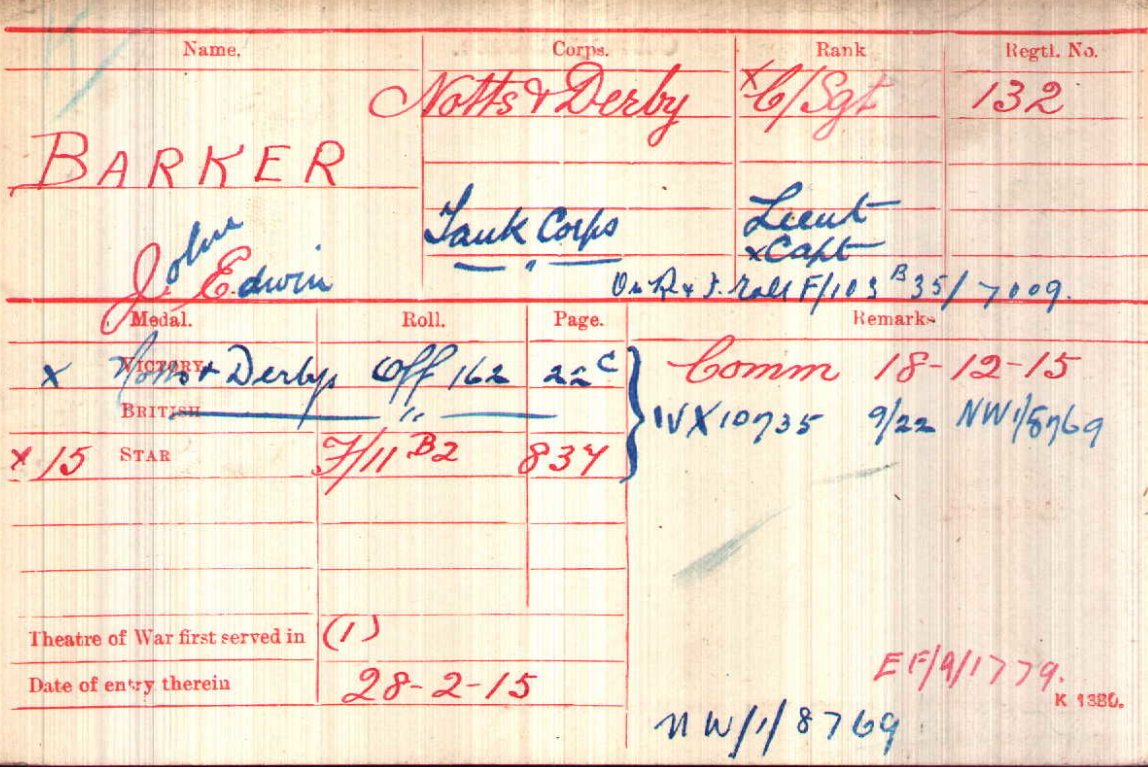 Name. Corps. Rank Regtl. No.
Notts & Derby xC/Sgt 132
BARKER
John Edwin
Tank Corps Lieut
" xCapt
On R & F. roll F/103 B35/7009.
Medal. Roll. Page. Remarks
x VICTORY Notts & Derbys Off 162 22C Comm 18-12-15
BRITISH " IVX10735 9/22 NW1/8769
x 15 STAR F/11 B2 837
Theatre of War first served in (1)
Date of entry therein 28-2-15
EF/9/1779.
K 1380.
NW/1/8769